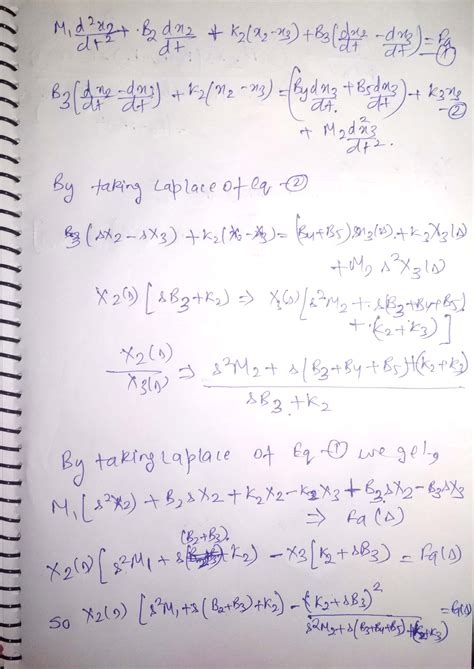 M₁ d²x₂/dt² + B₂ dx₂/dt + K₂(x₂-x₃) + B₃(dx₂/dt - dx₃/dt) = Fa -①
B₃(dx₂/dt - dx₃/dt) + K₂(x₂-x₃) = (B₄dx₃/dt + B₅dx₃/dt) + K₃x₃ -②
+ M₂d²x₃/dt².
By taking Laplace of Eq -②
B₃(sX₂ - sX₃) + K₂(X₂-X₃) = (B₄+B₅)sX₃(s) + K₃X₃(s)
+ M₂ s²X₃(s)
X₂(s) [sB₃+K₂) => X₃(s)[s²M₂ + s(B₃+B₄+B₅)
+ (K₂+K₃)]
X₂(s)/X₃(s) => s²M₂ + s(B₃+B₄+B₅)+(K₂+K₃)
sB₃ + K₂
By taking Laplace of Eq -① we get,
M₁[s²X₂) + B₂sX₂ + K₂X₂-K₂X₃ + B₃sX₂-B₃sX₃
=> Fa(s)
(B₂+B₃)
X₂(s)[s²M₁ + s + K₂) - X₃[K₂+sB₃) = Fa(s)
So X₂(s) [s²M₁+s(B₂+B₃)+K₂) - (K₂+sB₃)²
s²M₂+s(B₃+B₄+B₅)+(K₂+K₃)